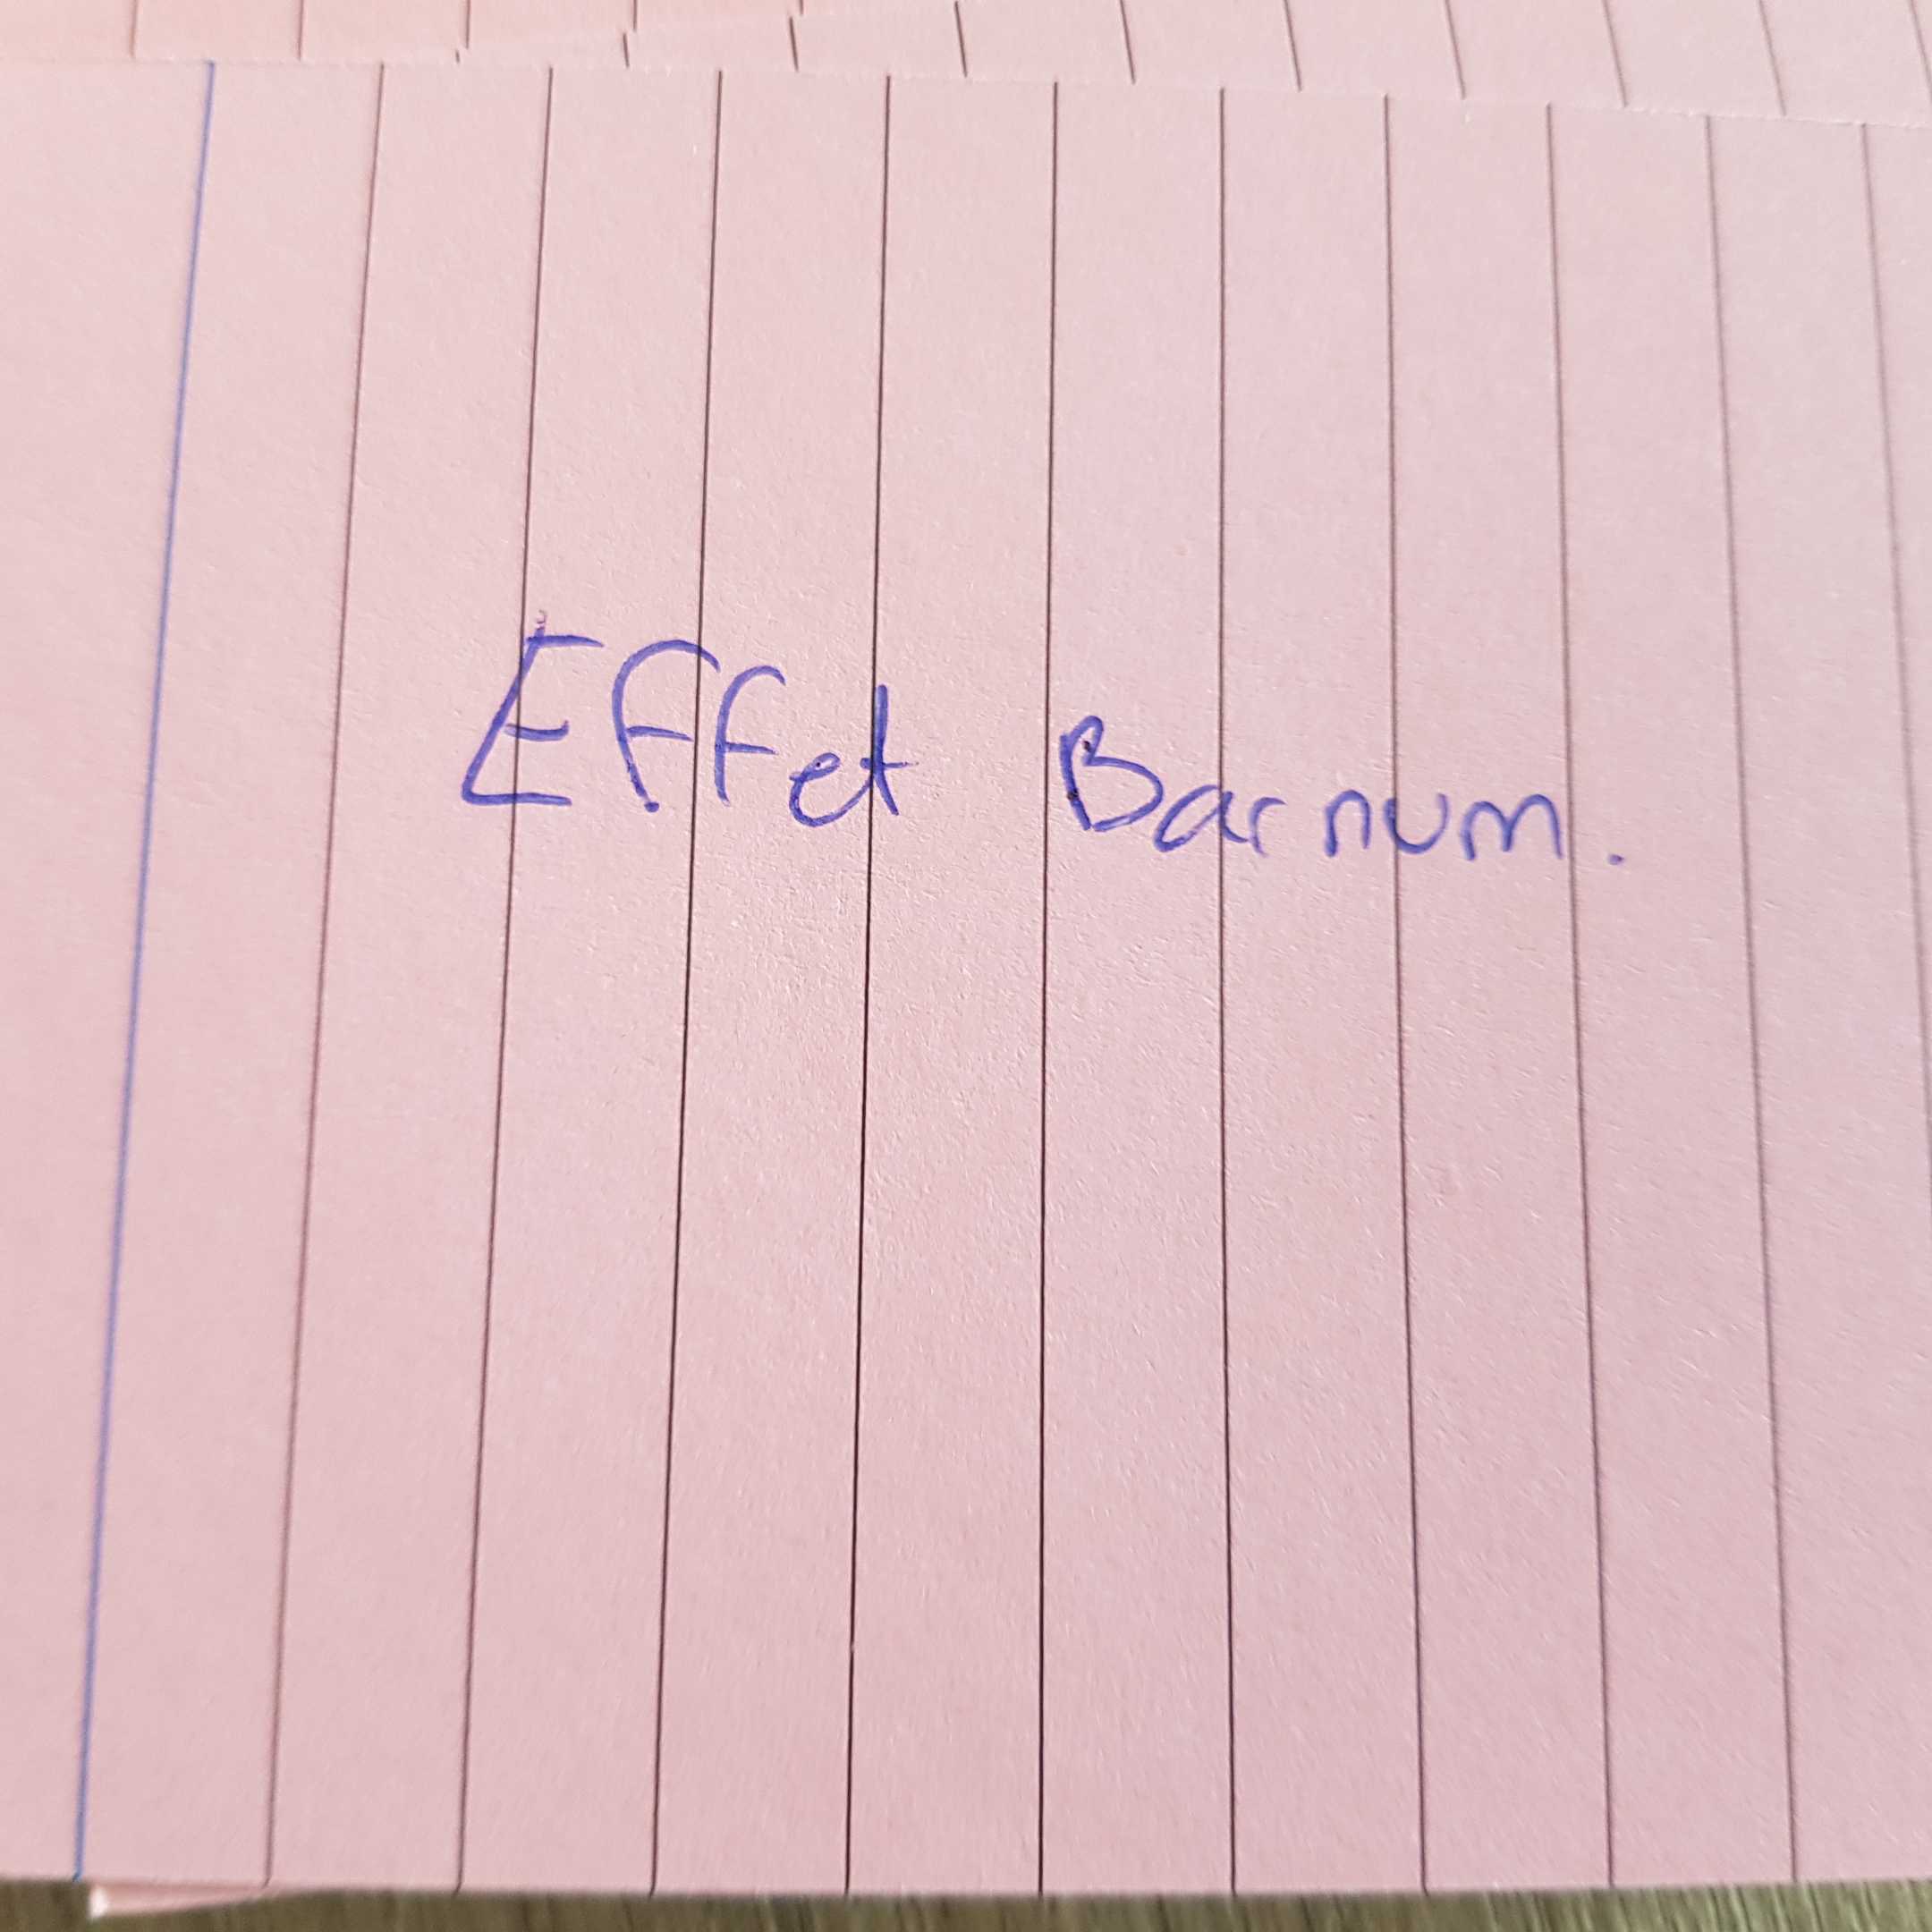 Effet Barnum.